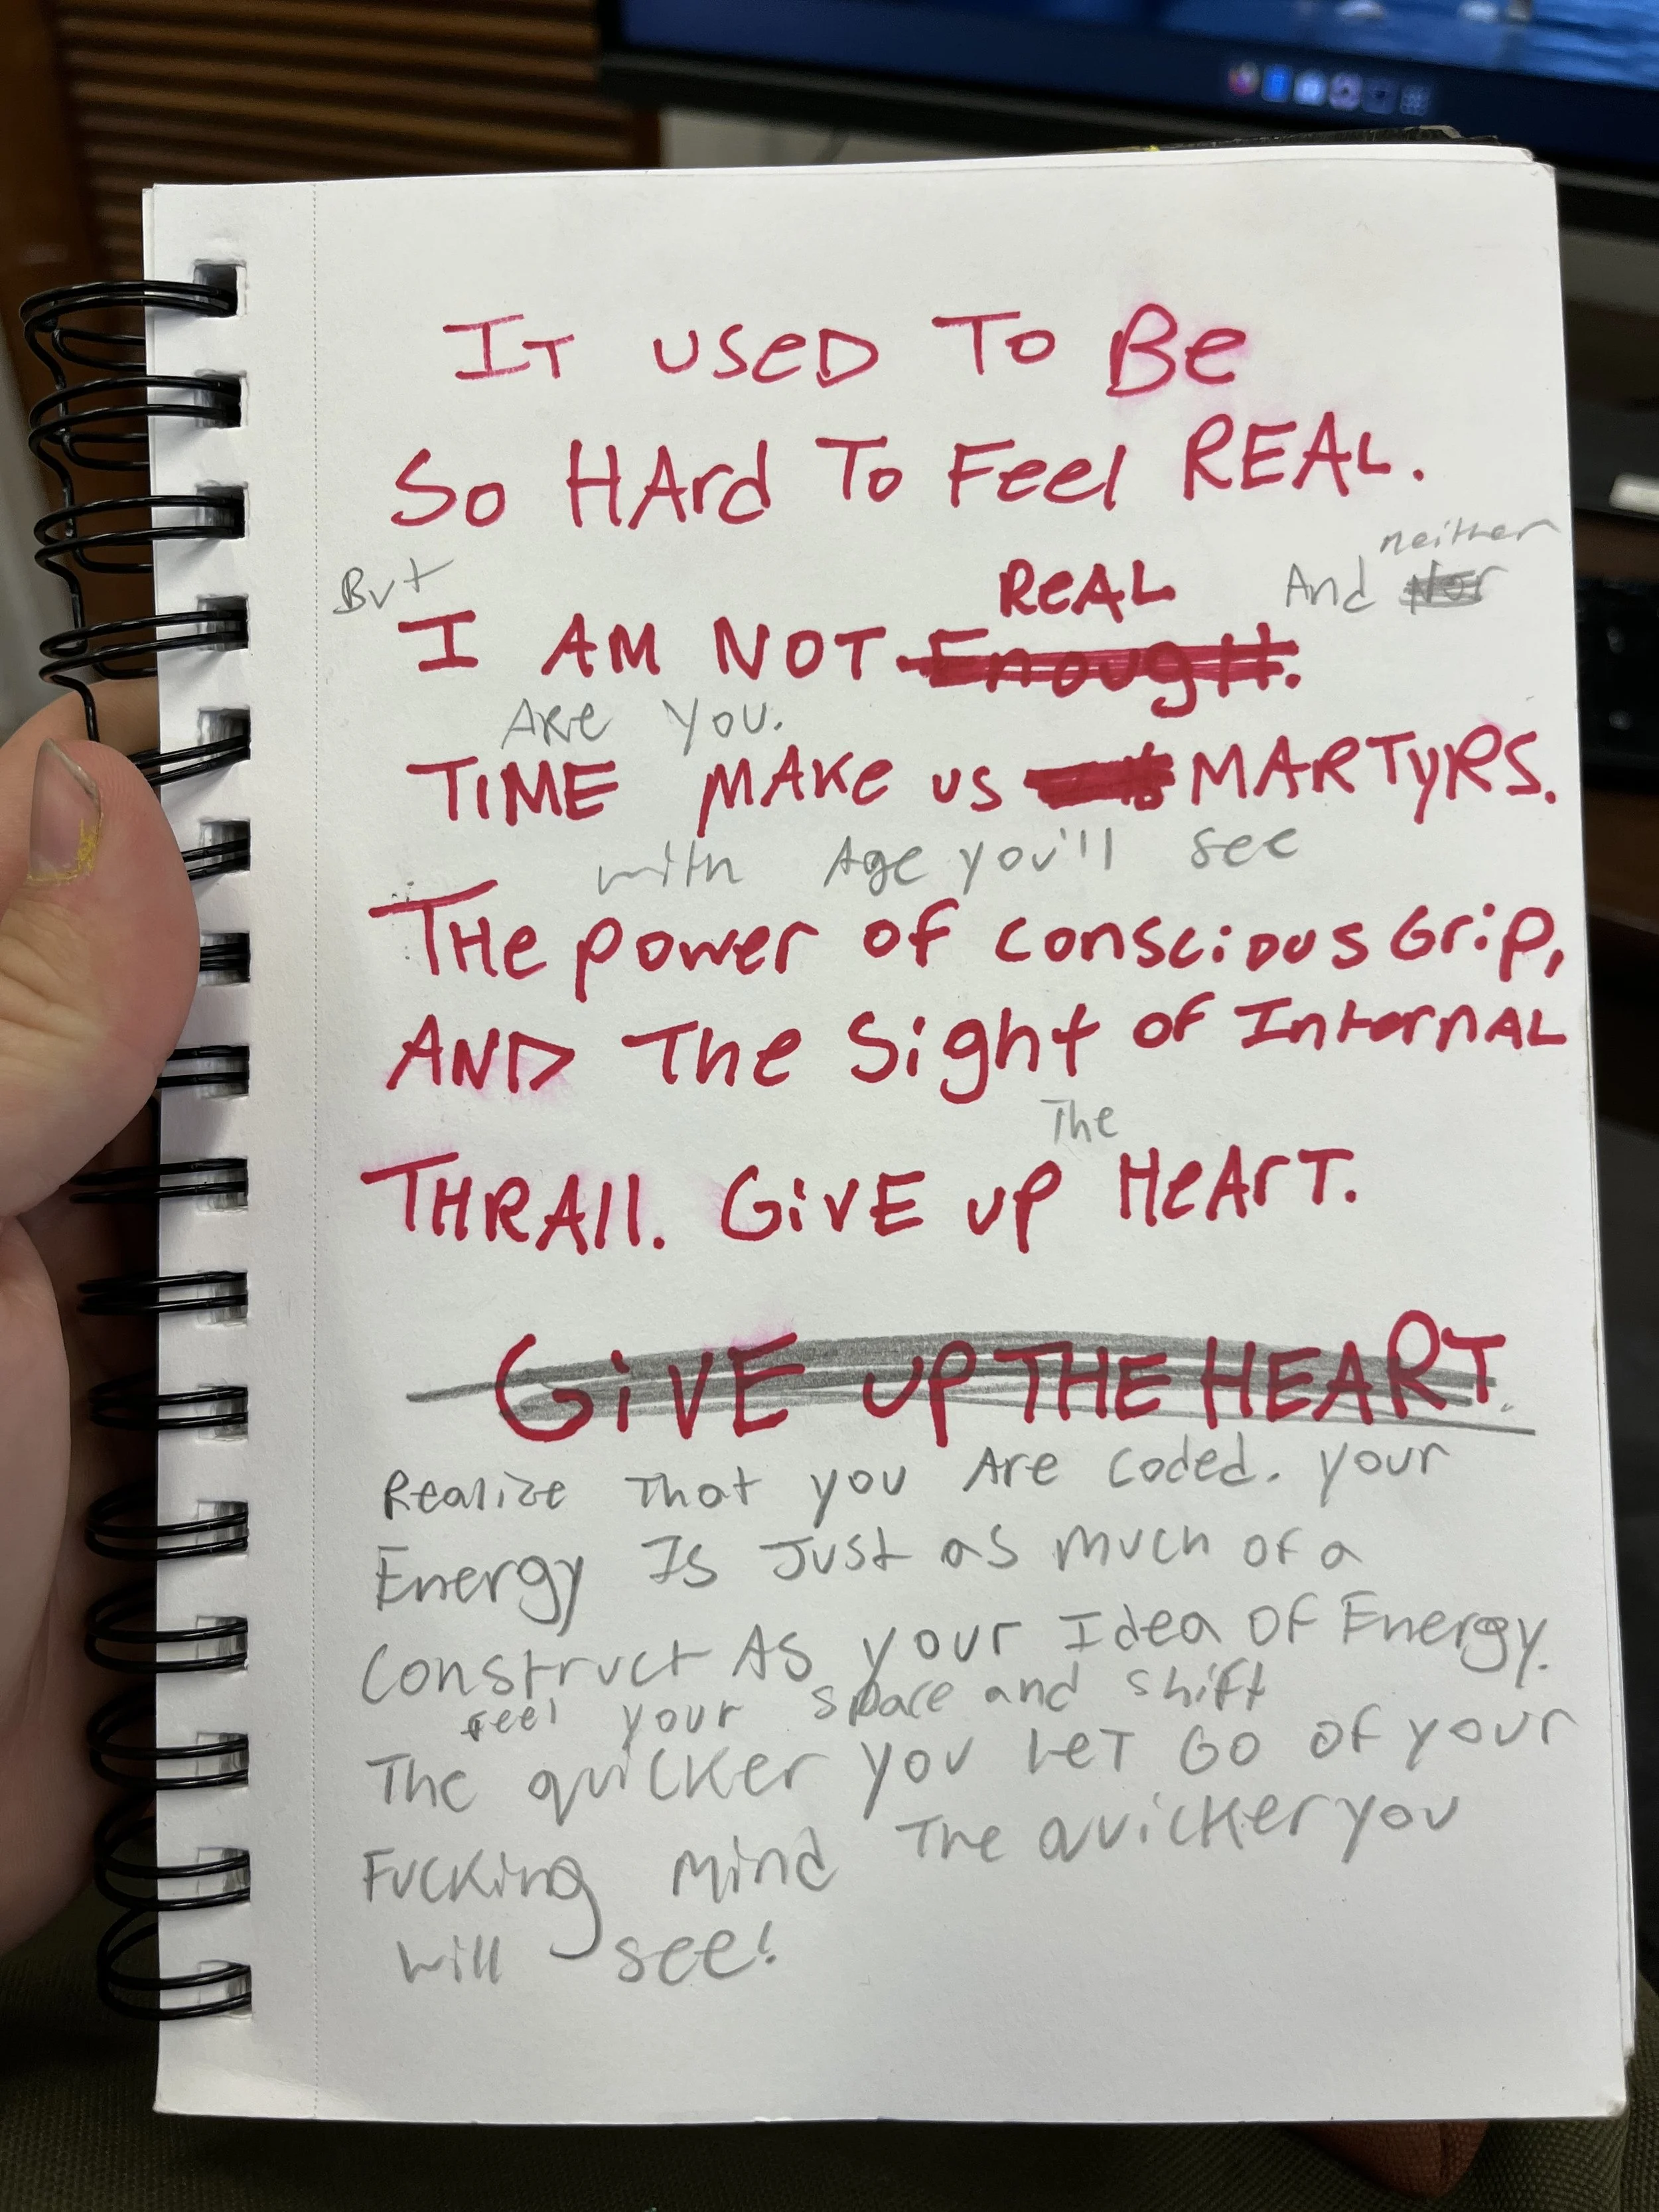 It used To Be
So HArd To Feel REAL.
But
neither
REAL And Nor
I AM NOT Enough.
Are you.
TIME MAKe us MARTyRS.
with Age you'll see
THe power of conscious Grip,
AND The Sight of InternAL
The
THRAll. GivE up HeArT.
GivE up THE HEART.
Realize That you Are coded. your
Energy Is Just as much of a
construct As your Idea Of Energy.
feel your space and shift
The quicker you LeT Go of your
Fucking mind The quicker you
will see!